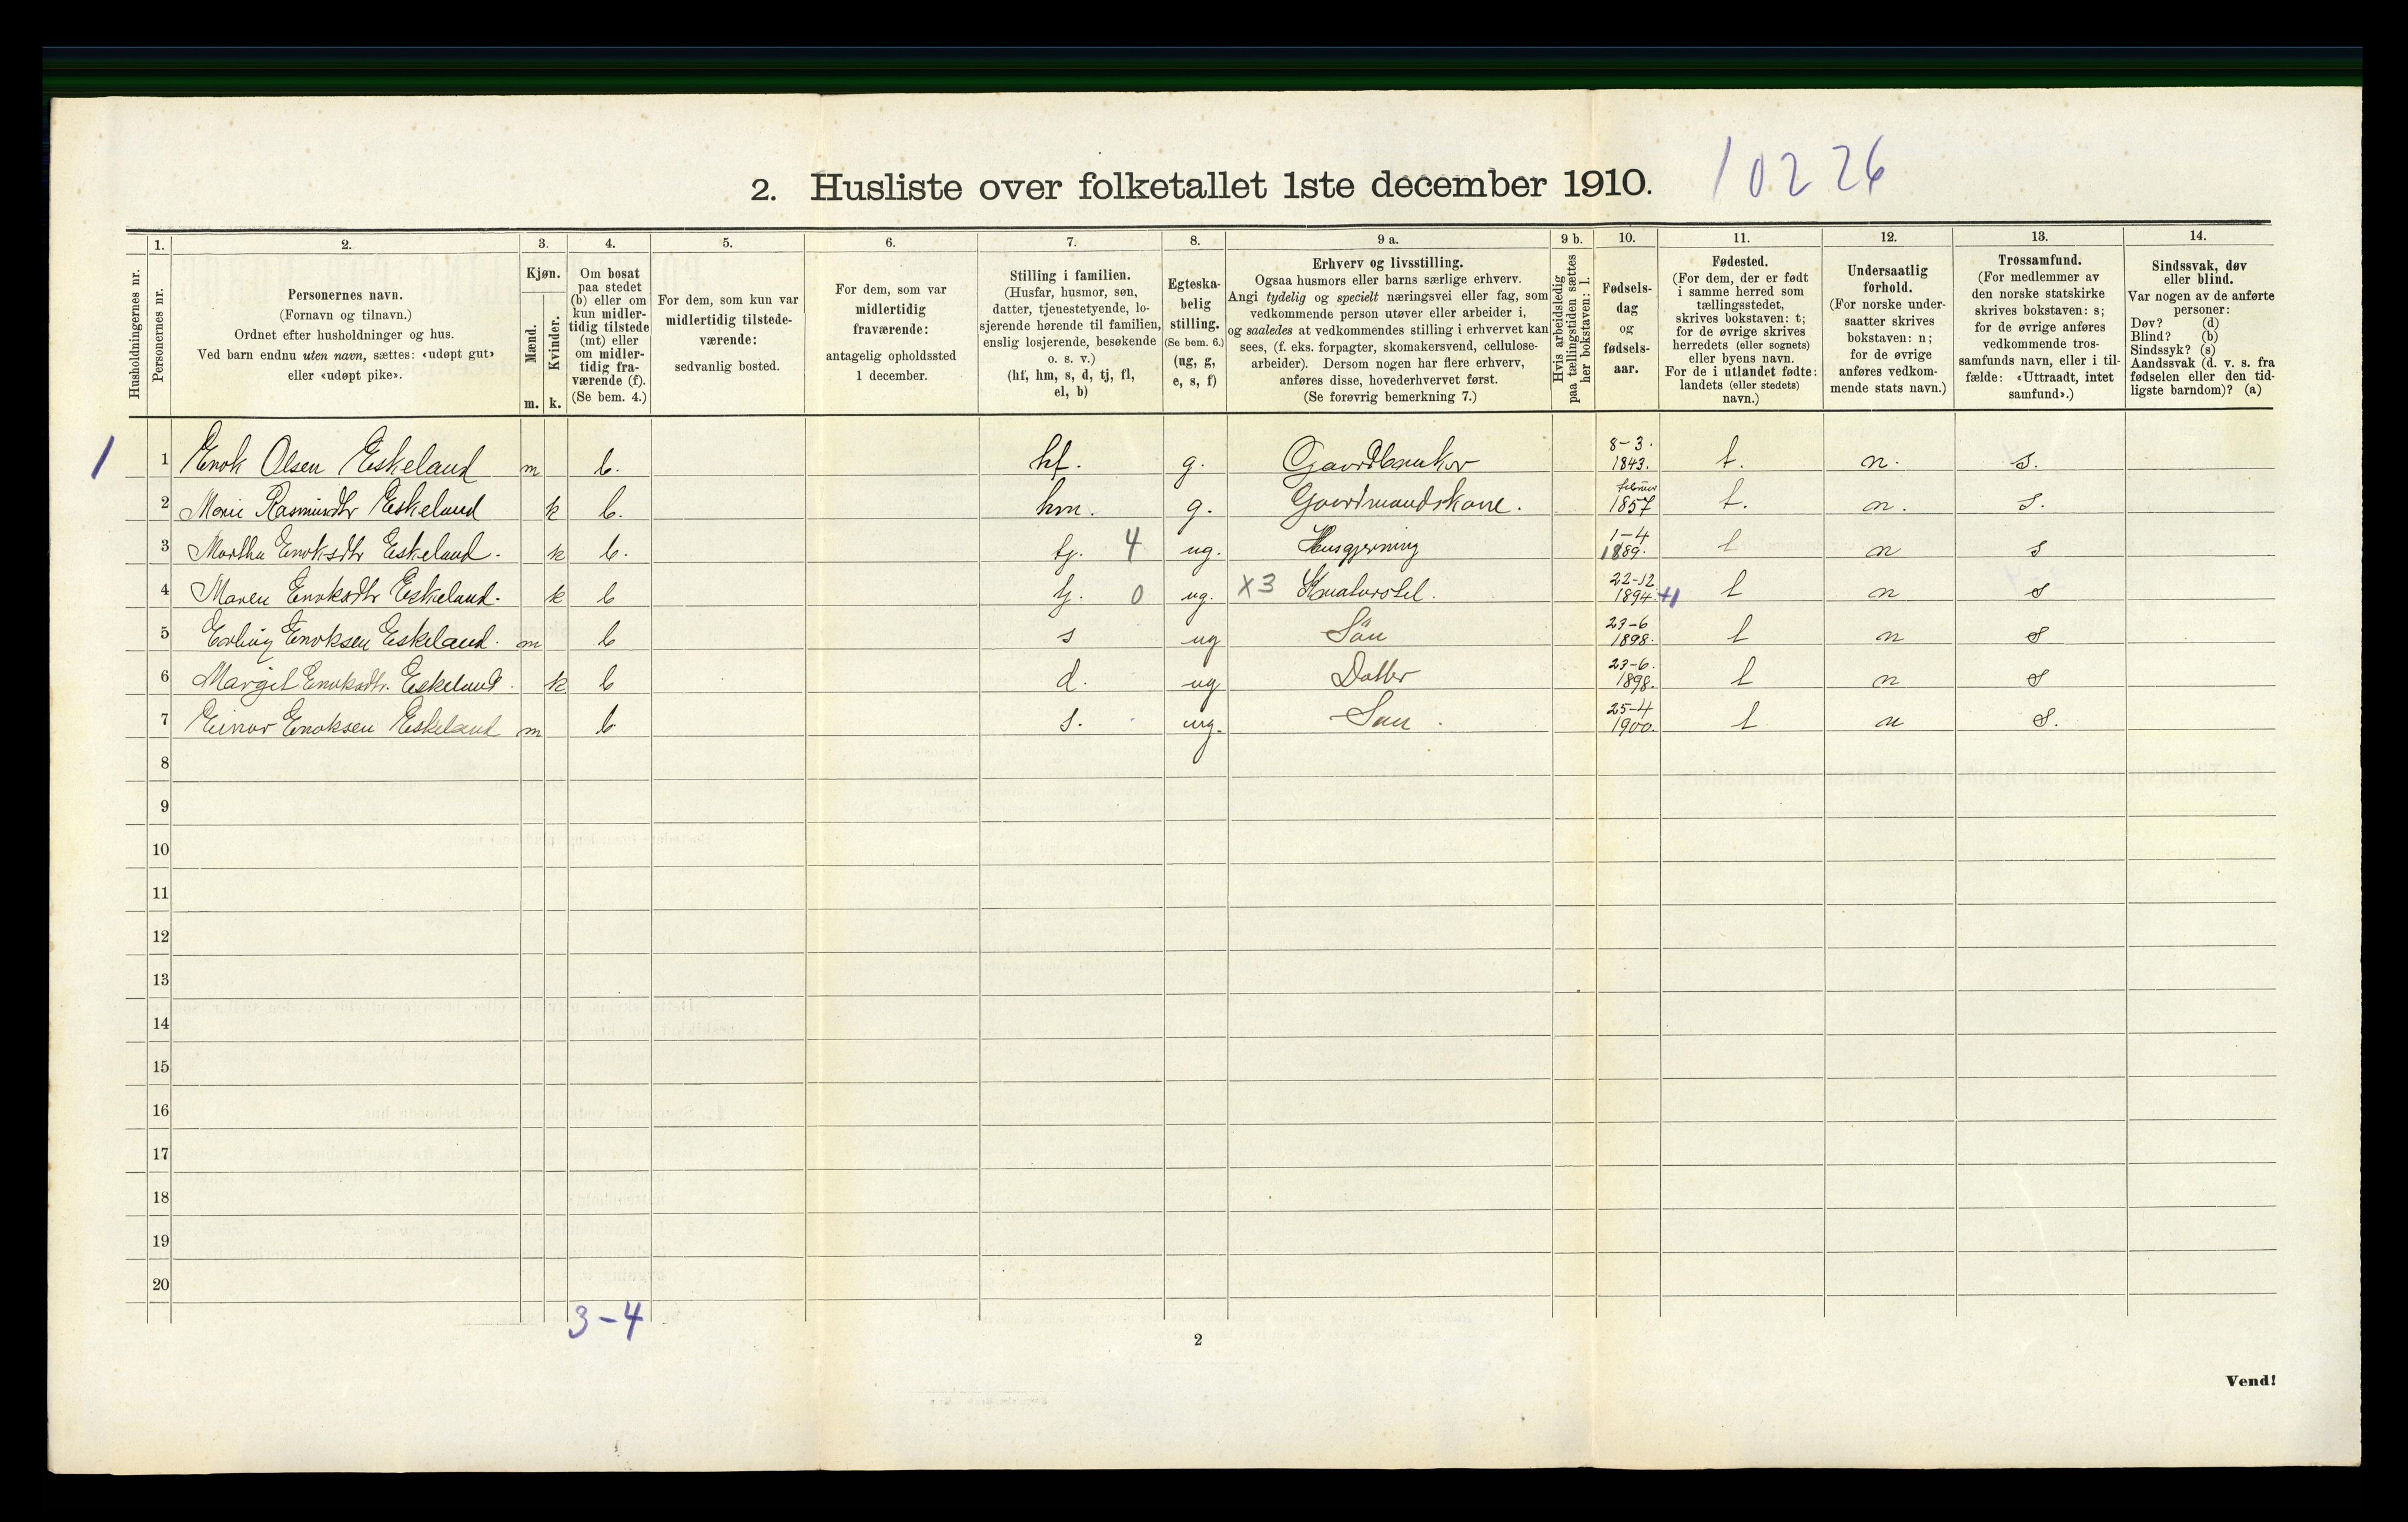 2. Husliste over folketallet 1ste december 1910.
10226
Husholdningernes nr.
1.
Personernes nr.
2.
Personernes navn.
(Fornavn og tilnavn.)
Ordnet efter husholdninger og hus.
Ved barn endnu uten navn, sættes: «udøpt gut»
eller «udøpt pike».
3.
Kjøn.
Mænd.
Kvinder.
m. k.
4.
Om bosat
paa stedet
(b) eller om
kun midler-
tidig tilstede
(mt) eller
om midler-
tidig fra-
værende (f).
(Se bem. 4.)
5.
For dem, som kun var
midlertidig tilstede-
værende:
sedvanlig bosted.
6.
For dem, som var
midlertidig
fraværende:
antagelig opholdssted
1 december.
7.
Stilling i familien.
(Husfar, husmor, søn,
datter, tjenestetyende, lo-
sjerende hørende til familien,
enslig losjerende, besøkende
o. s. v.)
(hf, hm, s, d, tj, fl,
el, b)
8.
Egteska-
belig
stilling.
(Se bem. 6.)
(ug, g,
e, s, f)
9 a.
Erhverv og livsstilling.
Ogsaa husmors eller barns særlige erhverv.
Angi tydelig og specielt næringsvei eller fag, som
vedkommende person utøver eller arbeider i,
og saaledes at vedkommendes stilling i erhvervet kan
sees, (f. eks. forpagter, skomakersvend, cellulose-
arbeider). Dersom nogen har flere erhverv,
anføres disse, hovederhvervet først.
(Se forøvrig bemerkning 7.)
9 b.
Hvis arbeidsledig
paa tællingstiden sættes
her bokstaven: l.
10.
Fødsels-
dag
og
fødsels-
aar.
11.
Fødested.
(For dem, der er født
i samme herred som
tællingsstedet,
skrives bokstaven: t;
for de øvrige skrives
herredets (eller sognets)
eller byens navn.
For de i utlandet fødte:
landets (eller stedets)
navn.)
12.
Undersaatlig
forhold.
(For norske under-
saatter skrives
bokstaven: n;
for de øvrige
anføres vedkom-
mende stats navn.)
13.
Trossamfund.
(For medlemmer av
den norske statskirke
skrives bokstaven: s;
for de øvrige anføres
vedkommende tros-
samfunds navn, eller i til-
fælde: «Uttraadt, intet
samfund».)
14.
Sindssvak, døv
eller blind.
Var nogen av de anførte
personer:
Døv? (d)
Blind? (b)
Sindssyk? (s)
Aandssvak (d. v. s. fra
fødselen eller den tid-
ligste barndom)? (a)
1 1 Enok Olsen Eskeland m b. hf. g. Gaardbruker 8-3. 1843. t. n. s.
2 Marie Rasmusdtr Eskeland k b. hm. g. Gaardmandskone. februar 1857 t. n. s.
3 Martha Enoksdtr Eskeland. k b. tj. 4 ug. Husgjerning 1-4 1889. t n s
4 Maren Enoksdtr Eskeland. k b tj. 0 ug. X3 Kreaturstel. 22-12 1894. +1 t n s
5 Erling Enoksen Eskeland. m b s ug Sön 23-6 1898. t n s
6 Margit Enoksdtr. Eskeland. k b d. ug Datter 23-6. 1898. t n s
7 Einar Enoksen Eskeland m b s. ug. Søn. 25-4 1900. t n s.
8
9
10
11
12
13
14
15
16
17
18
19
20
3-4
2
Vend!